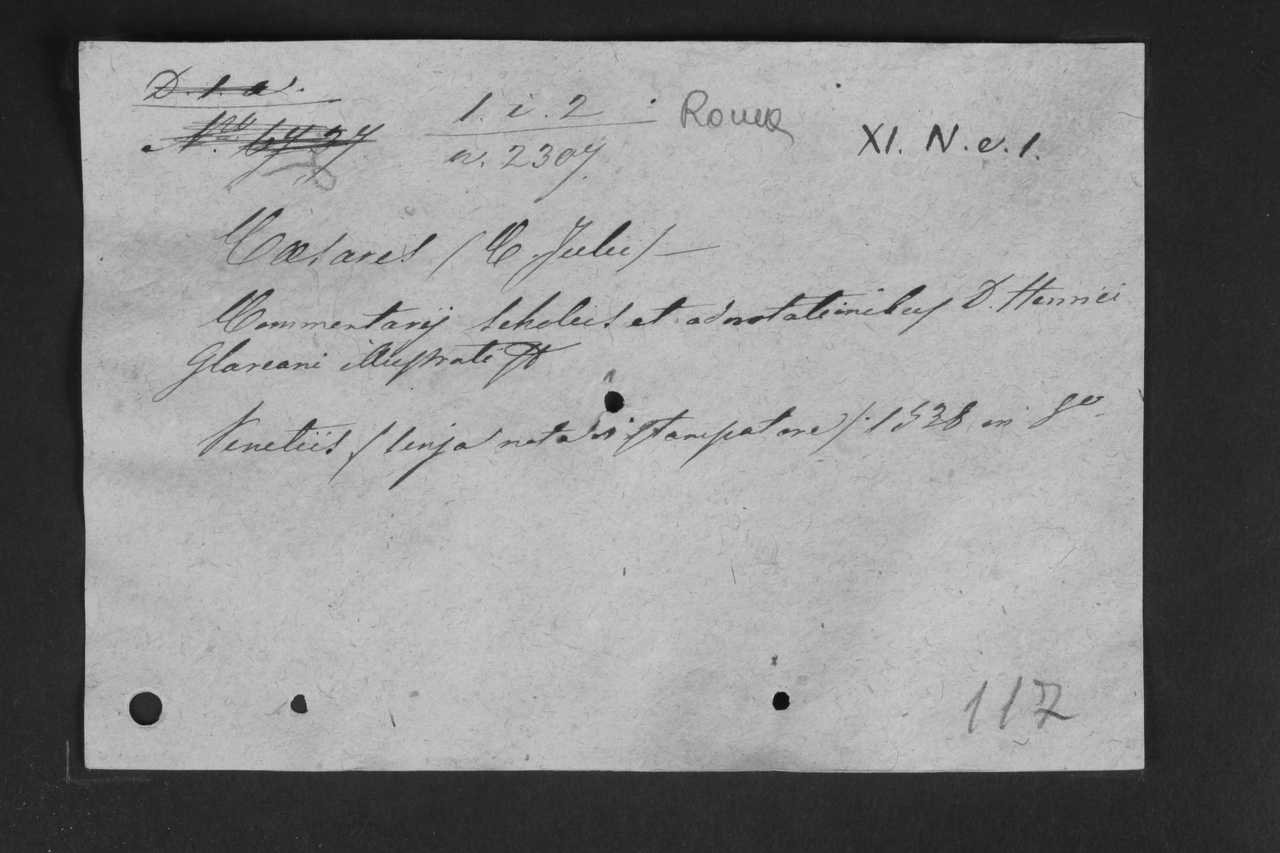 D. 1. a.
1. i. 2
Roma
XI. N. e. 1.
n. 2307.
Cæsares (C. Julii) —
Commentarij scholiis et adnotationibus D. Henrici
Glareani illustrati
Venetiis (senza nota di stampatore) 1538 in 8vo
117